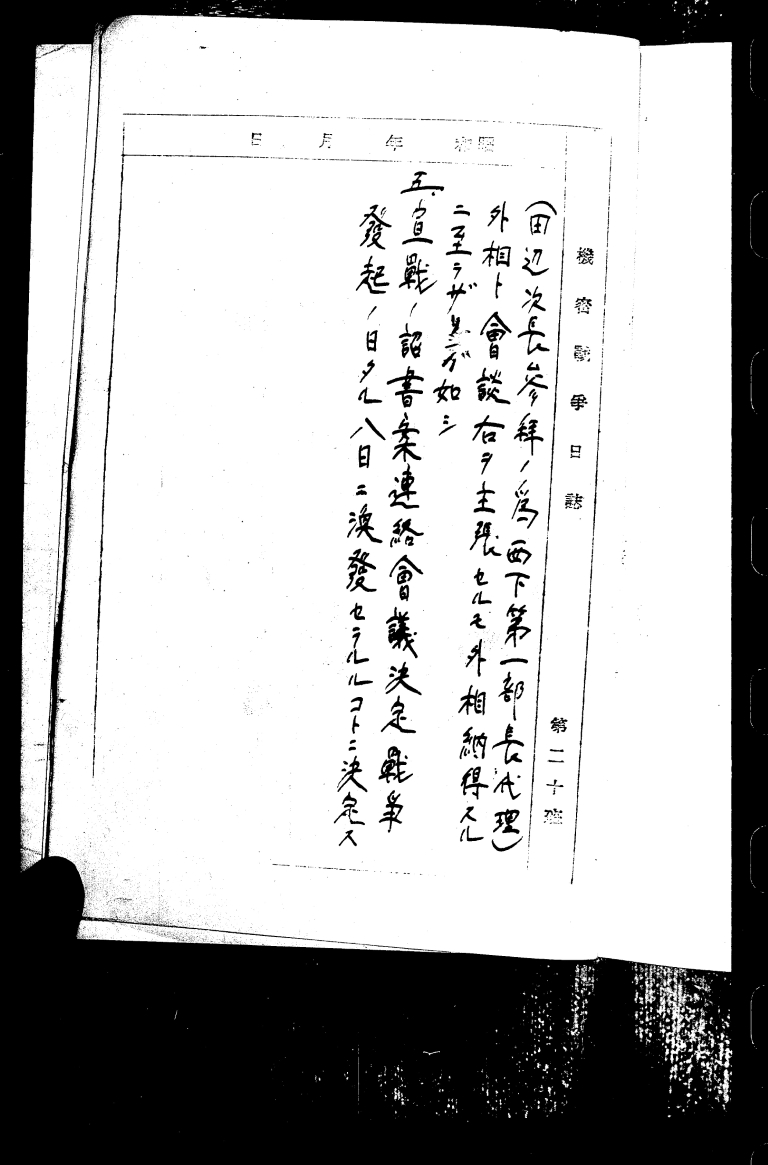 機密戰爭日誌
第二十班
昭和 年 月 日
(田辺次長參拜ノ爲西下第一部長代理)
外相ト會談右ヲ主張セルモ外相納得スル
ニ至ラザルガ如シ
五、宣戰ノ詔書案連絡會議決定戰爭
發起ノ日タル八日ニ渙發セラルルコトニ決定ス